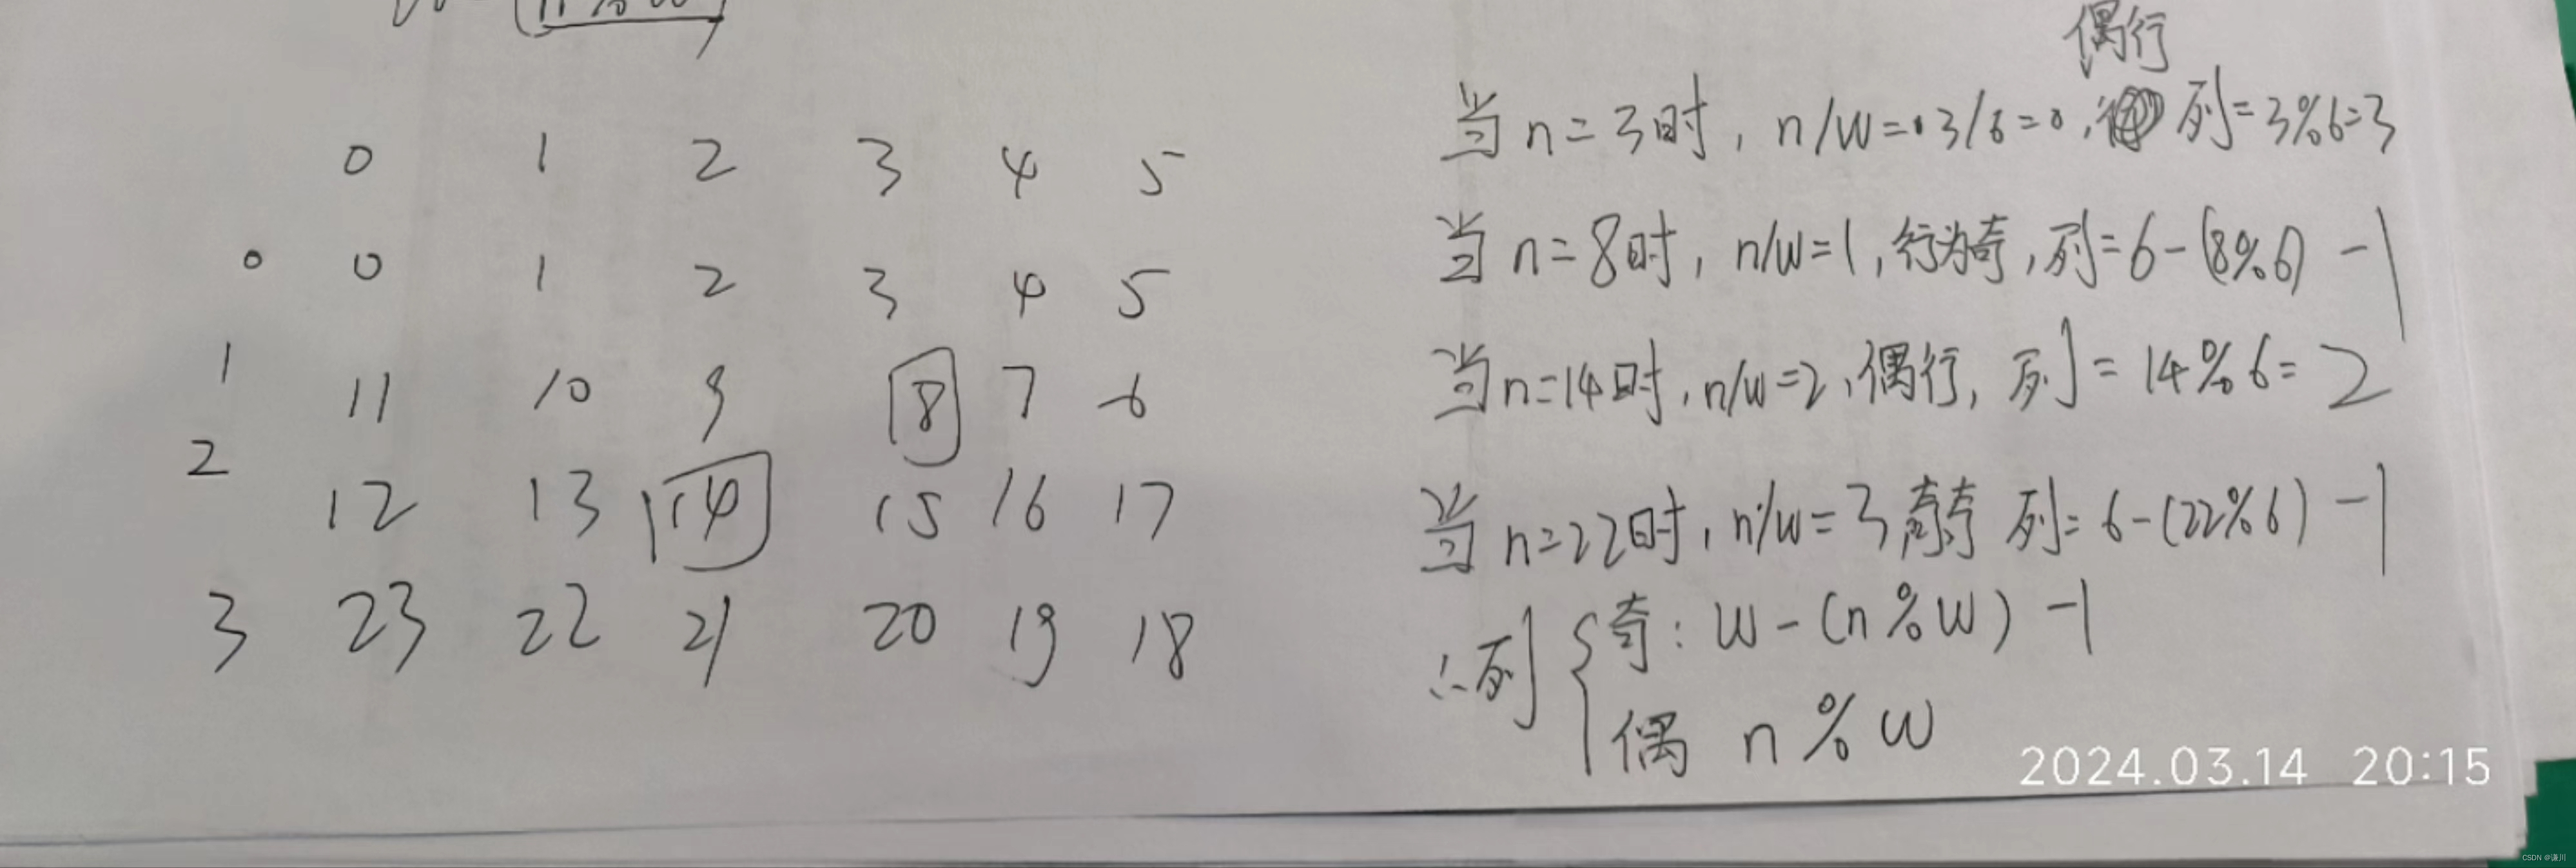 0 1 2 3 4 5
0 0 1 2 3 4 5
1 11 10 9 8 7 6
2 12 13 14 15 16 17
3 23 22 21 20 19 18
偶行
当n=3时, n/w=3/6=0, 列=3%6=3
当n=8时, n/w=1, 行为奇, 列=6-(8%6)-1
当n=14时, n/w=2, 偶行, 列=14%6=2
当n=22时, n/w=3, 奇 列=6-(22%6)-1
∴列{奇: W-(n%W)-1
偶 n%W
2024.03.14 20:15